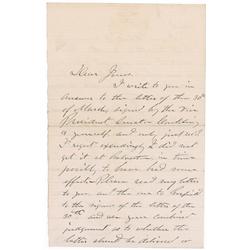 Dear Jones.
I write to you in
answer to the letter of the 30th
of March, signed by the Vice
President Senator Conkling
& yourself and only just rec'd
I regret exceedingly I did not
get it at Galveston in time
possibly to have had some
effect. Please read my letter
to you and then use to
to the signers of the letter of the
30th and use your combined
judgment as to whether the
letter should be delivered or